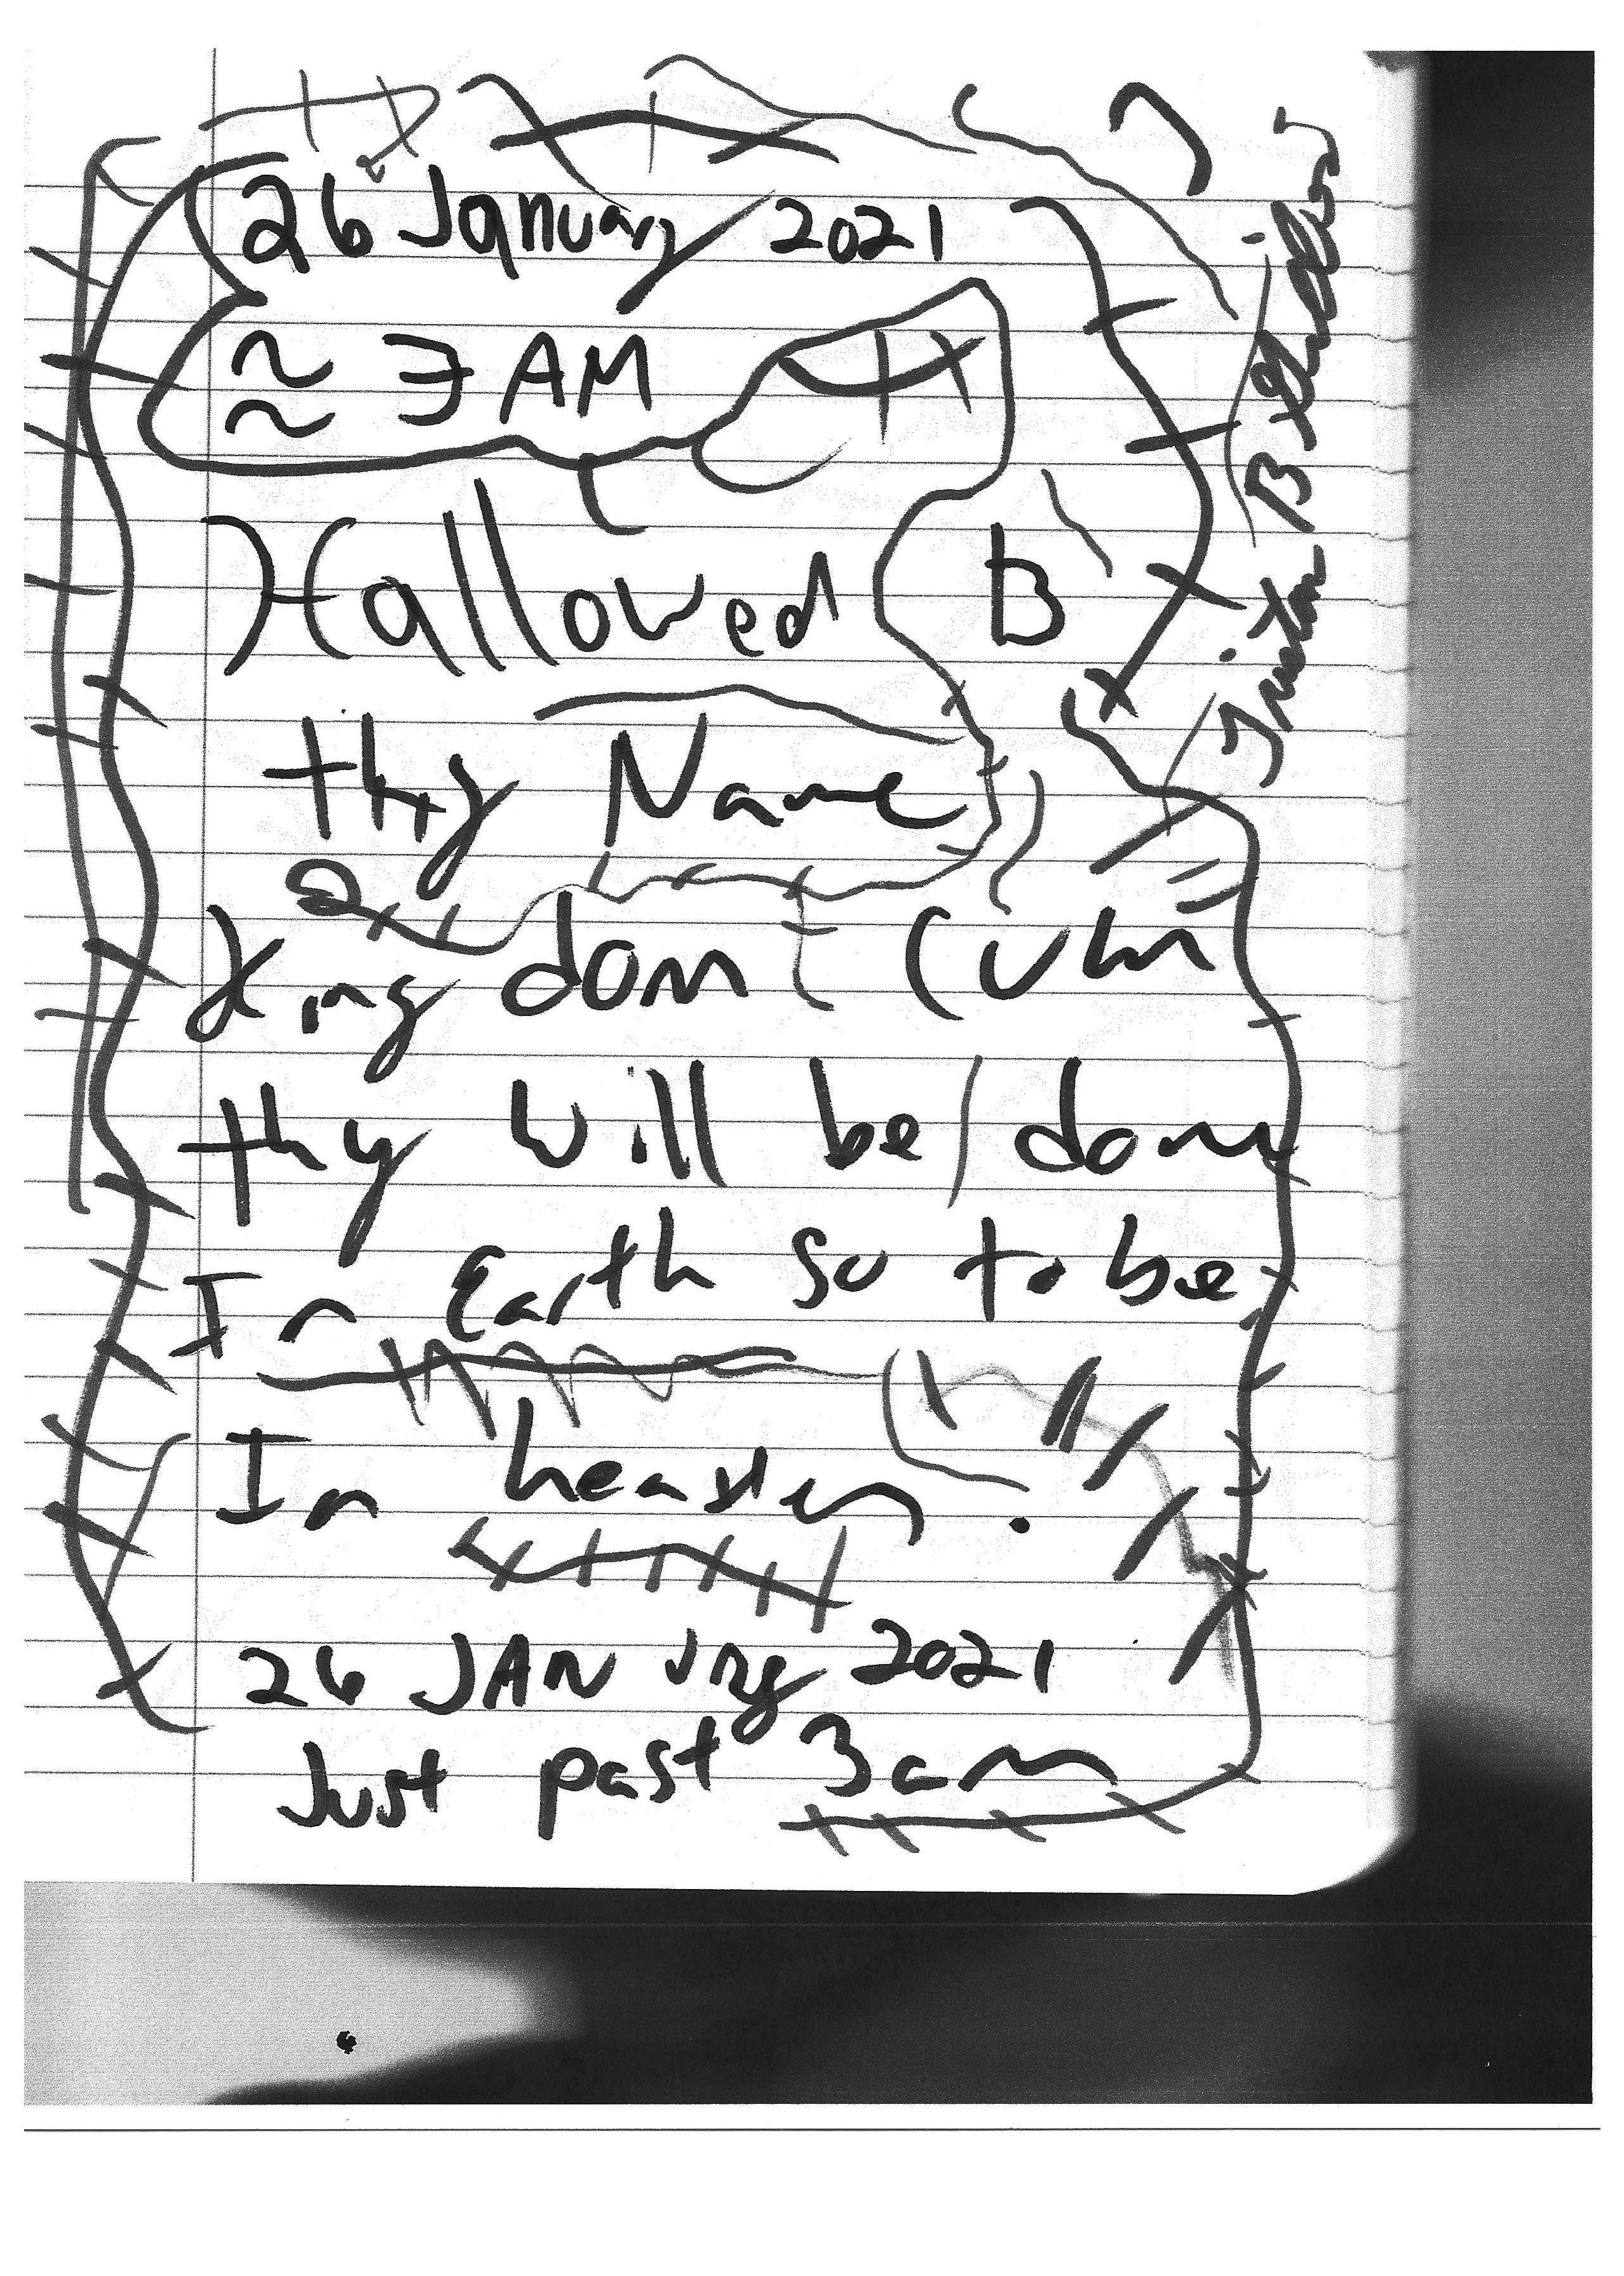 26 January 2021
≈ 3 AM
Hallowed B
thy Name
Kingdom Cum
thy will be done
In Earth so to be
In heaven.
26 JANury 2021
Just past 3am